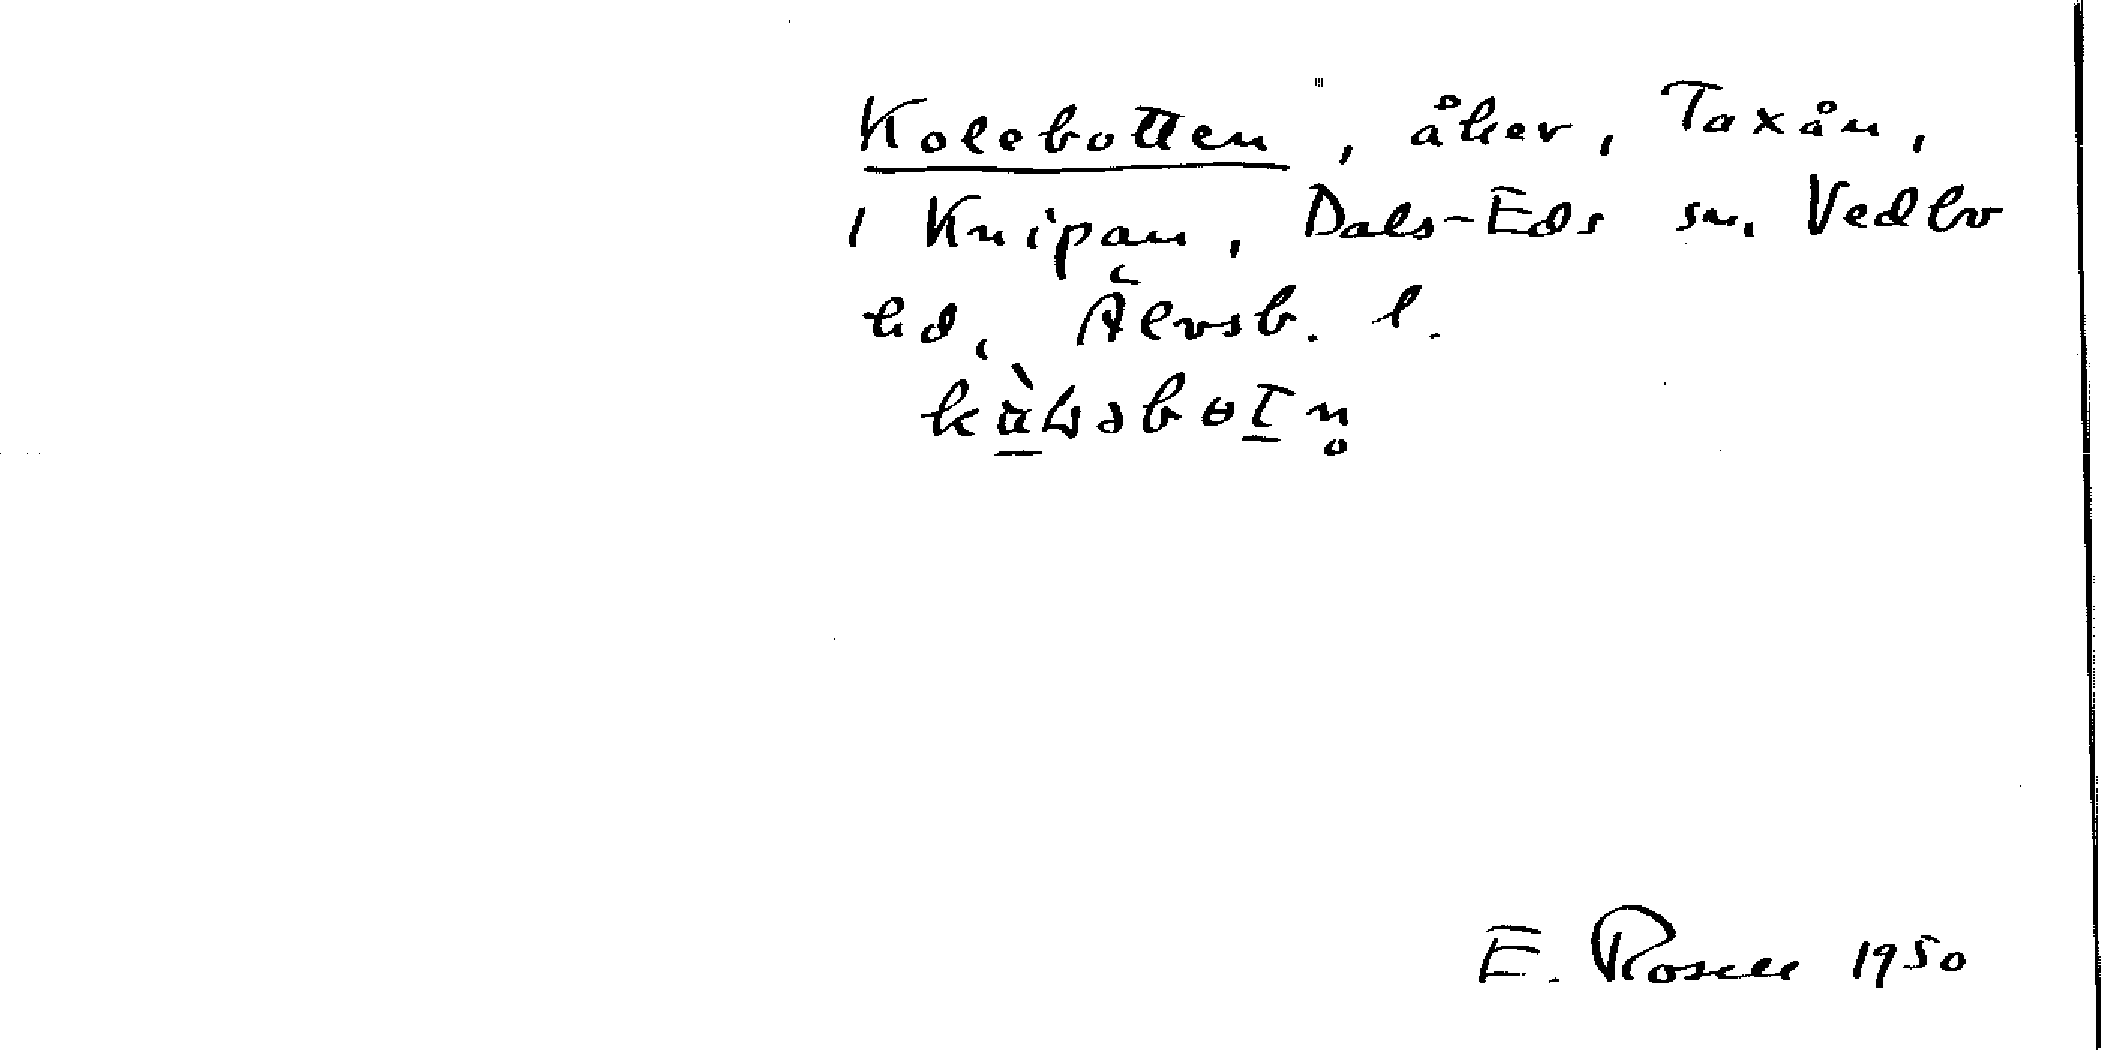 Kolebotten, åker, Taxån,
1 Knipan, Dals-Eds sn, Vedbo
hd, Älvsb. l.
E. Rosell 1950